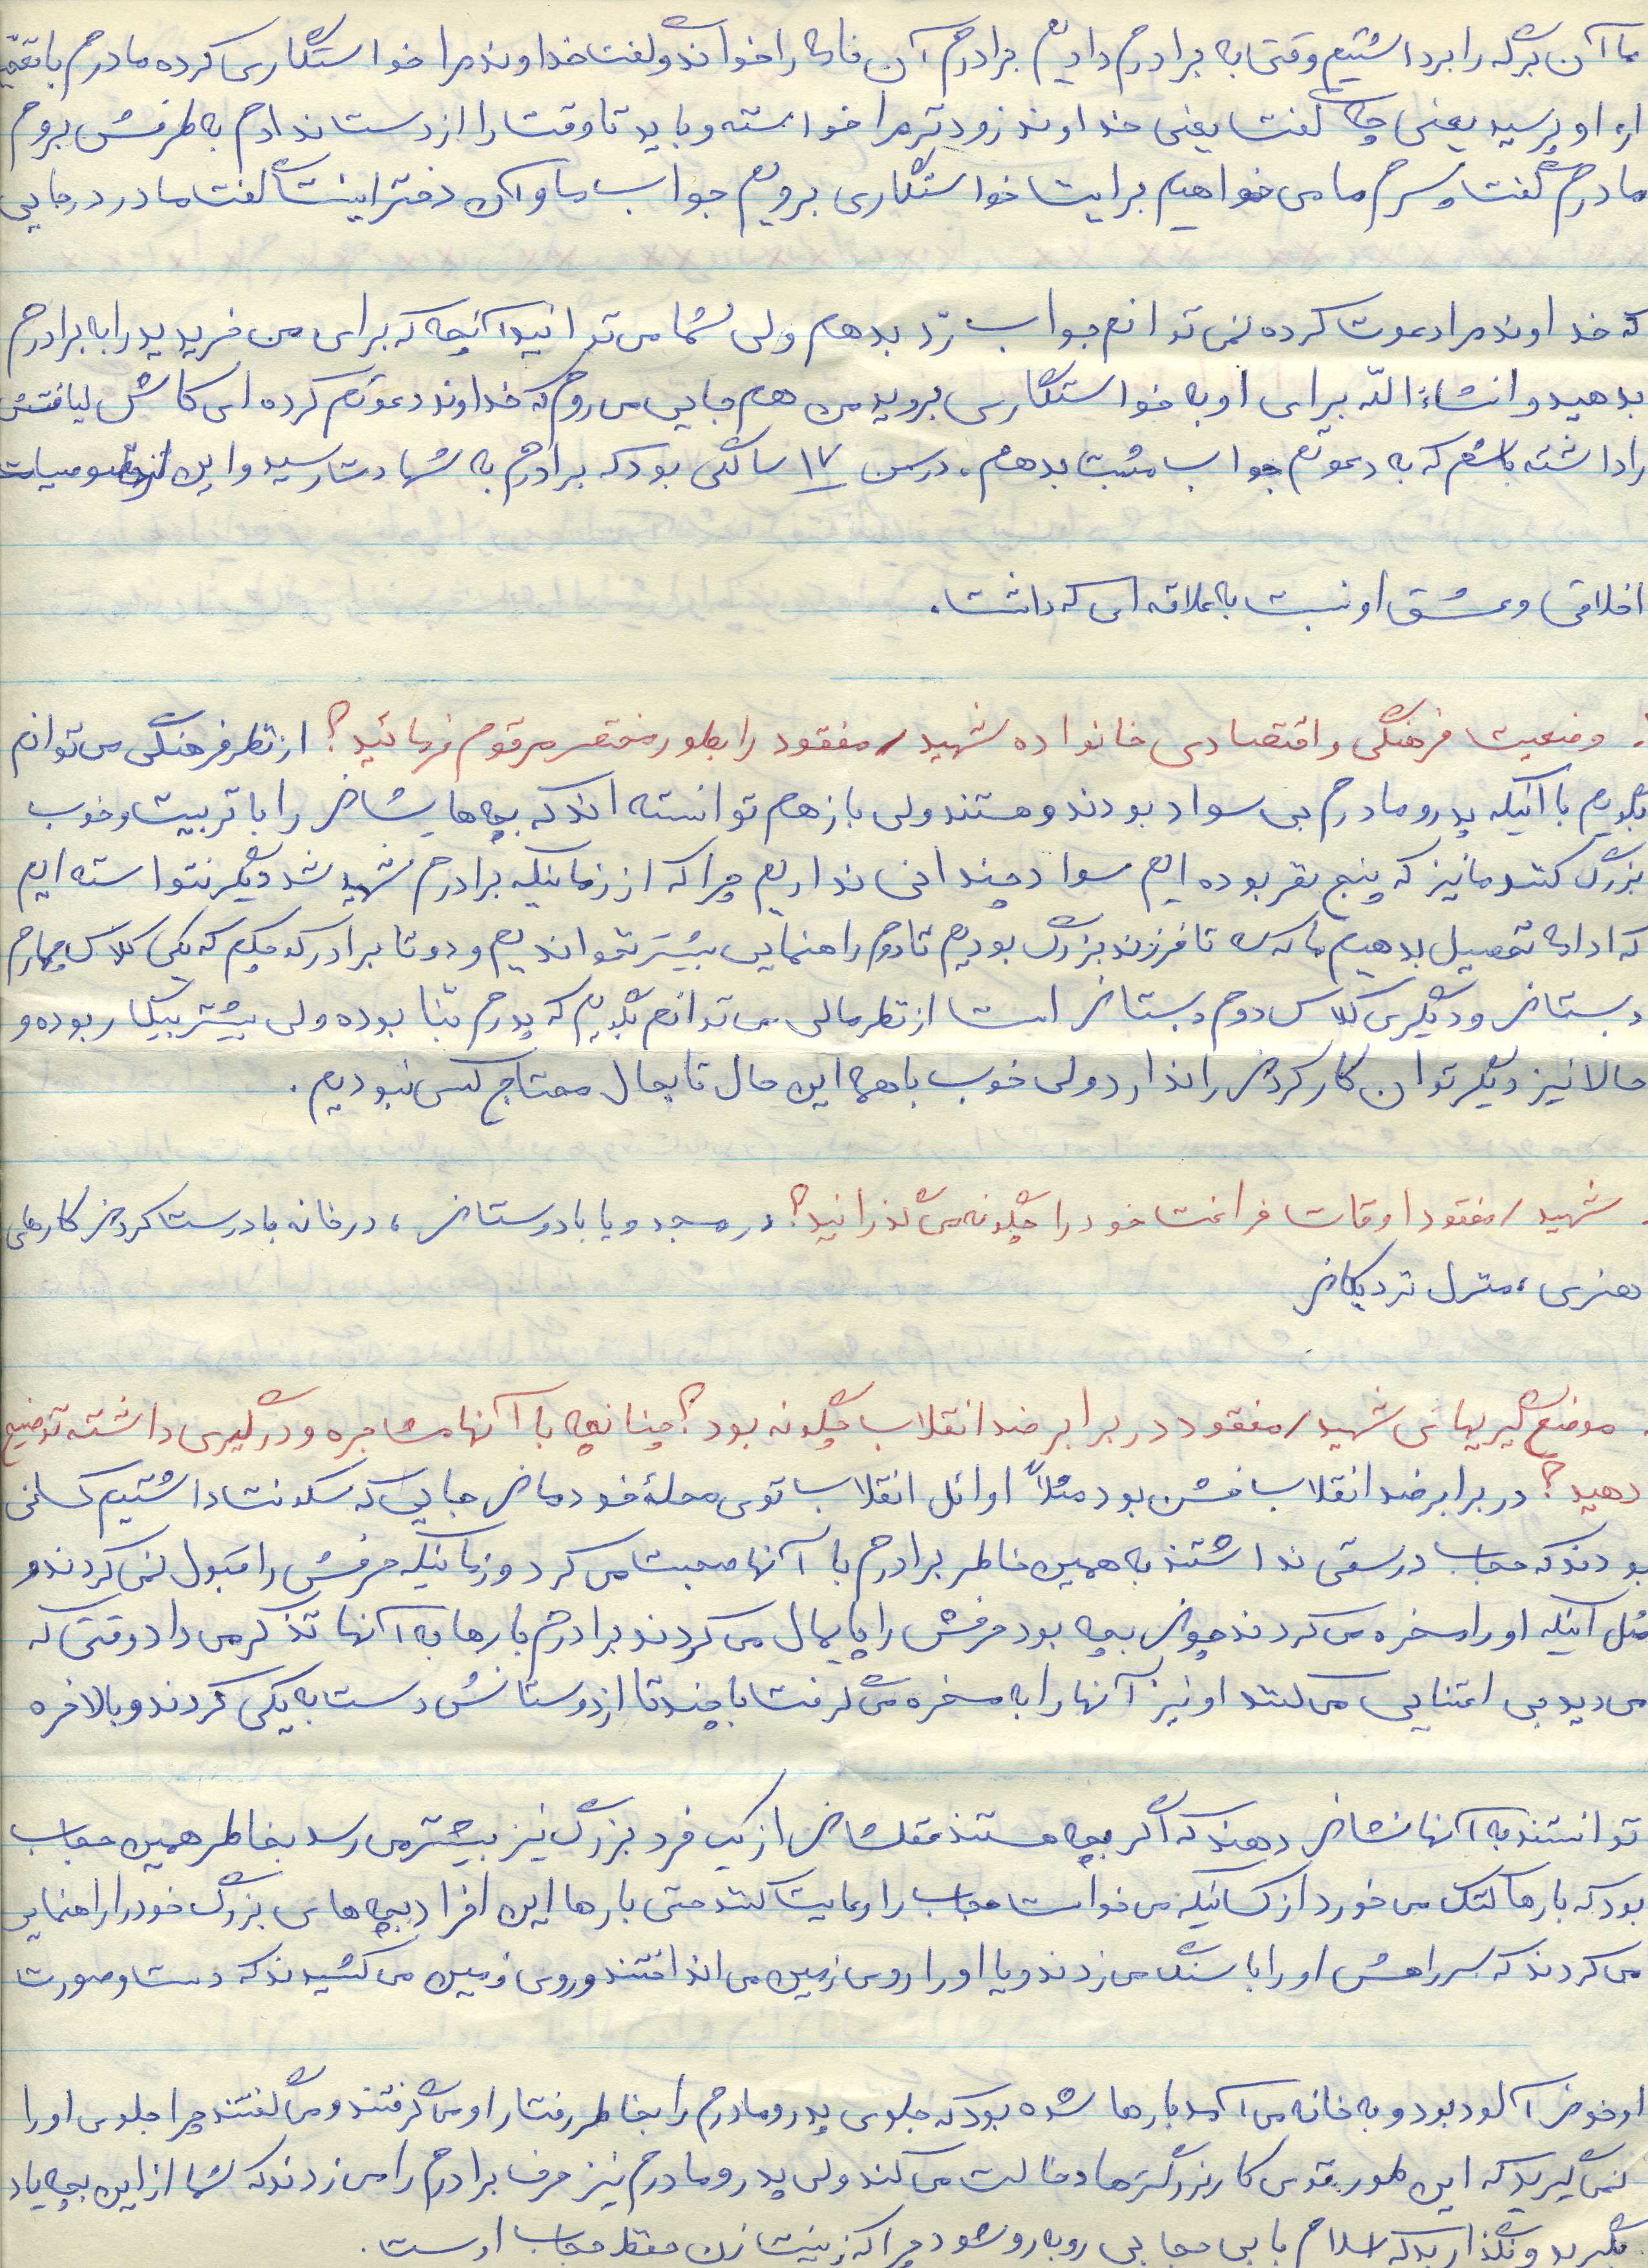 ما آن برگه را برداشتیم وقتی به برادرم دادیم برادرم آن نامه را خواند و گفت خداوند مرا خواستگاری کرده مادرم با تعجب
از او پرسید یعنی چه گفت یعنی خداوند زودتر مرا خواسته و باید تا وقت را از دست ندادم به طرفش بروم
مادرم گفت پسرم ما می خواهیم برایت خواستگاری برویم جواب ما و آن دختر اینست گفت مادر در جایی
که خداوند مرا دعوت کرده نمی توانم جواب رد بدهم ولی شما می توانید آنچه که برای من خریدید را به برادرم
بدهید و انشاءالله برای او به خواستگاری بروید من هم جایی می روم که خداوند دعوتم کرده ای کاش لیاقتش
را داشته باشم که به دعوتم جواب مثبت بدهم. در سن ۱۷ سالگی بود که برادرم به شهادت رسید و این خصوصیات
اخلاقی و عشق او نسبت به علاقه ای که داشت.
. وضعیت فرهنگی و اقتصادی خانواده شهید/مفقود را بطور مختصر مرقوم فرمائید؟ از نظر فرهنگی می توانم
بگویم با اینکه پدر و مادرم بی سواد بودند و هستند ولی باز هم توانسته اند که بچه هایشان را با تربیت و خوب
بزرگ کنند ما نیز که پنج نفر بوده ایم سواد چندانی نداریم چرا که از زمانیکه برادرم شهید شد دیگر نتوانسته ایم
که ادامه تحصیل بدهیم ما که سه تا فرزند بزرگ بودیم تا دوم راهنمایی بیشتر نخواندیم و دو تا برادر کوچکم که یکی کلاس چهارم
دبستان و دیگری کلاس دوم دبستان است از نظر مالی می توانم بگویم که پدرم بنا بوده ولی بیشتر بیکار بوده و
حالا نیز دیگر توان کار کردن را ندارد ولی خوب با همه این حال تا بحال محتاج کسی نبودیم.
. شهید/مفقود اوقات فراغت خود را چگونه می گذرانید؟ در مسجد و یا با دوستان، در خانه با درست کردن کارهای
هنری، منزل نزدیکان
. موضع گیریهای شهید/مفقود در برابر ضد انقلاب چگونه بود؟ چنانچه با آنها مشاجره و درگیری داشته توضیح
دهید؟ در برابر ضد انقلاب خشن بود مثلاً اوائل انقلاب توی محلهٔ خودمان جایی که سکونت داشتیم کسانی
بودند که حجاب درستی نداشتند به همین خاطر برادرم با آنها صحبت می کرد و زمانیکه حرفش را قبول نمی کردند و
مثل اینکه او را مسخره می کردند چون بچه بود حرفش را پایمال می کردند برادرم بارها به آنها تذکر می داد وقتی که
می دید بی اعتنایی می کنند او نیز آنها را به مسخره می گرفت با چند تا از دوستانش دست به یکی کردند و بالاخره
توانستند به آنها نشان دهند که اگر بچه هستند عقلشان از یک فرد بزرگ نیز بیشتر می رسد بخاطر همین حجاب
بود که بارها کتک می خورد از کسانیکه می خواست حجاب را رعایت کنند حتی بارها این افراد بچه های بزرگ خود را راهنمایی
می کردند که سر راهش او را با سنگ می زدند و یا او را روی زمین می انداختند و روی زمین می کشیدند که دست و صورت
او خون آلود بود و به خانه می آمد بارها شده بود که جلوی پدر و مادرم را بخاطر رفتار او می گرفتند و می گفتند چرا جلوی او را
نمی گیرید که این طور توی کار بزرگترها دخالت می کند ولی پدر و مادرم نیز حرف برادرم را می زدند که شما از این بچه یاد
بگیرید و نگذارید که اسلام با بی حجابی روبه رو شود چرا که زینت زن حفظ حجاب اوست.